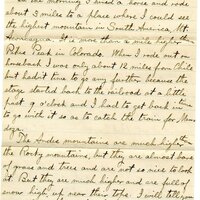 In the morning I hired a horse and rode
about 5 miles to a place where I could see
the highest mountain in South America, Mt.
Aconcagua. It is more than a mile higher
Pikes Peak in Colorado. When I rode out on
horseback I was only about 12 miles from Chile
but hadn't time to go any further because the
stage started back to the railroad at a little
past 9 o'clock and I had to get back in time
to go with it so as to catch the train for Men
doza.
The Andes mountains are much higher
the Rocky mountains, but they are almost bare
of grass and trees and are not so nice to look
at. But they are much higher and are full of
snow high up near their tops. I will tell you